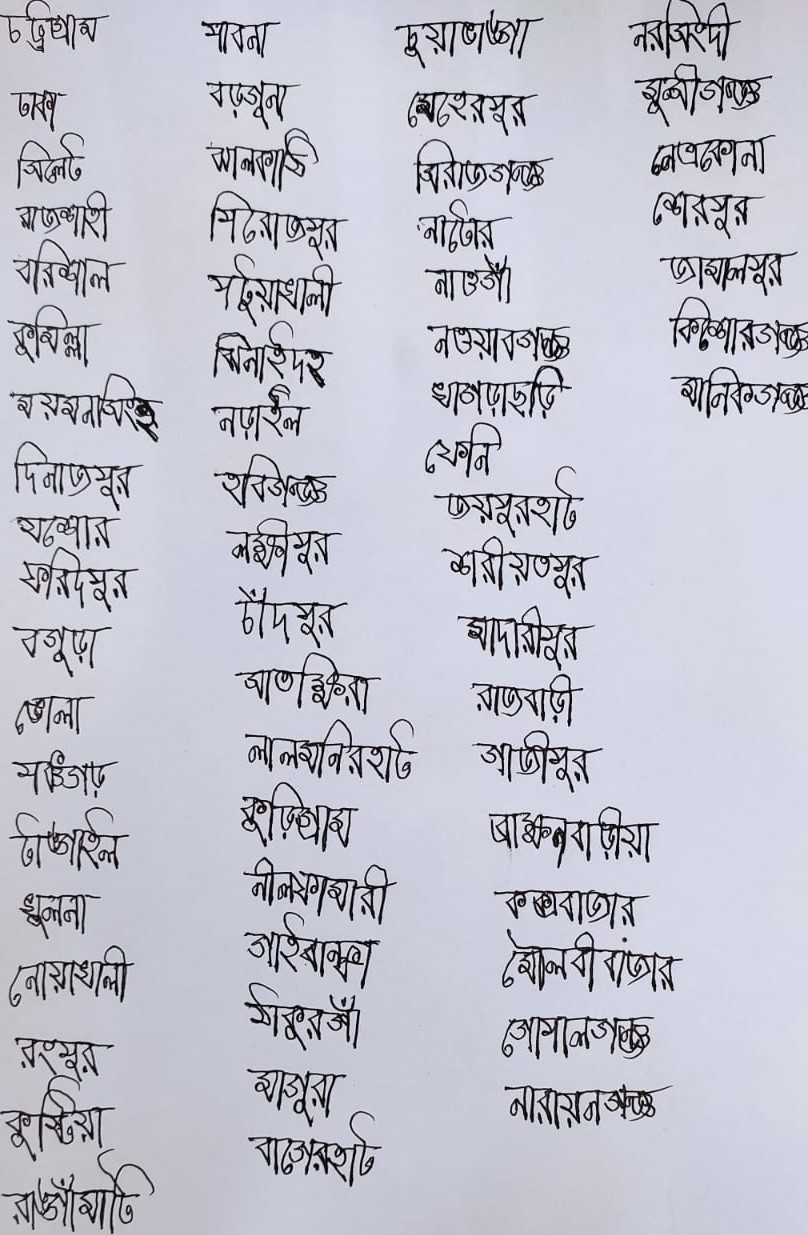 চট্রিগ্রাম
ঢাকা
সিলেট
রাজশাহী
বরিশাল
কুমিল্লা
ময়মনসিংহ
দিনাজপুর
যশোর
ফরিদপুর
বগুড়া
ভোলা
পঞ্চগড়
টাঙ্গাইল
খুলনা
নোয়াখালী
রংপুর
কুষ্টিয়া
রাঙ্গাঁমাটি
পাবনা
বড়গুনা
ঝালকাঠি
পিরোজপুর
পটুয়াখালী
ঝিনাইদহ
নড়াইল
হবিগন্জ
লক্ষীপুর
চাঁদপুর
সাতক্ষিরা
লালমনিরহাট
কুড়িগ্রাম
নীলফামারী
গাইবান্ধা
ঠাকুরগাঁ
মাগুরা
বাগেরহাট
চুয়াডাঙ্গা
মেহেরপুর
সিরাজগন্জ
নাটোর
নাওগাঁ
নওয়াবগন্জ
খাগড়াছড়ি
ফেনি
জয়পুরহাট
শরীয়তপুর
মাদারীপুর
রাজবাড়ী
গাজীপুর
ব্রাক্ষনবাড়ীয়া
কক্সবাজার
মৌলবীবাজার
গোপালগন্জ
নারায়নগন্জ
নরসিংদী
মুন্সীগন্জ
নেত্রকোনা
শেরপুর
জামালপুর
কিশোরগন্জ
মানিকগন্জ